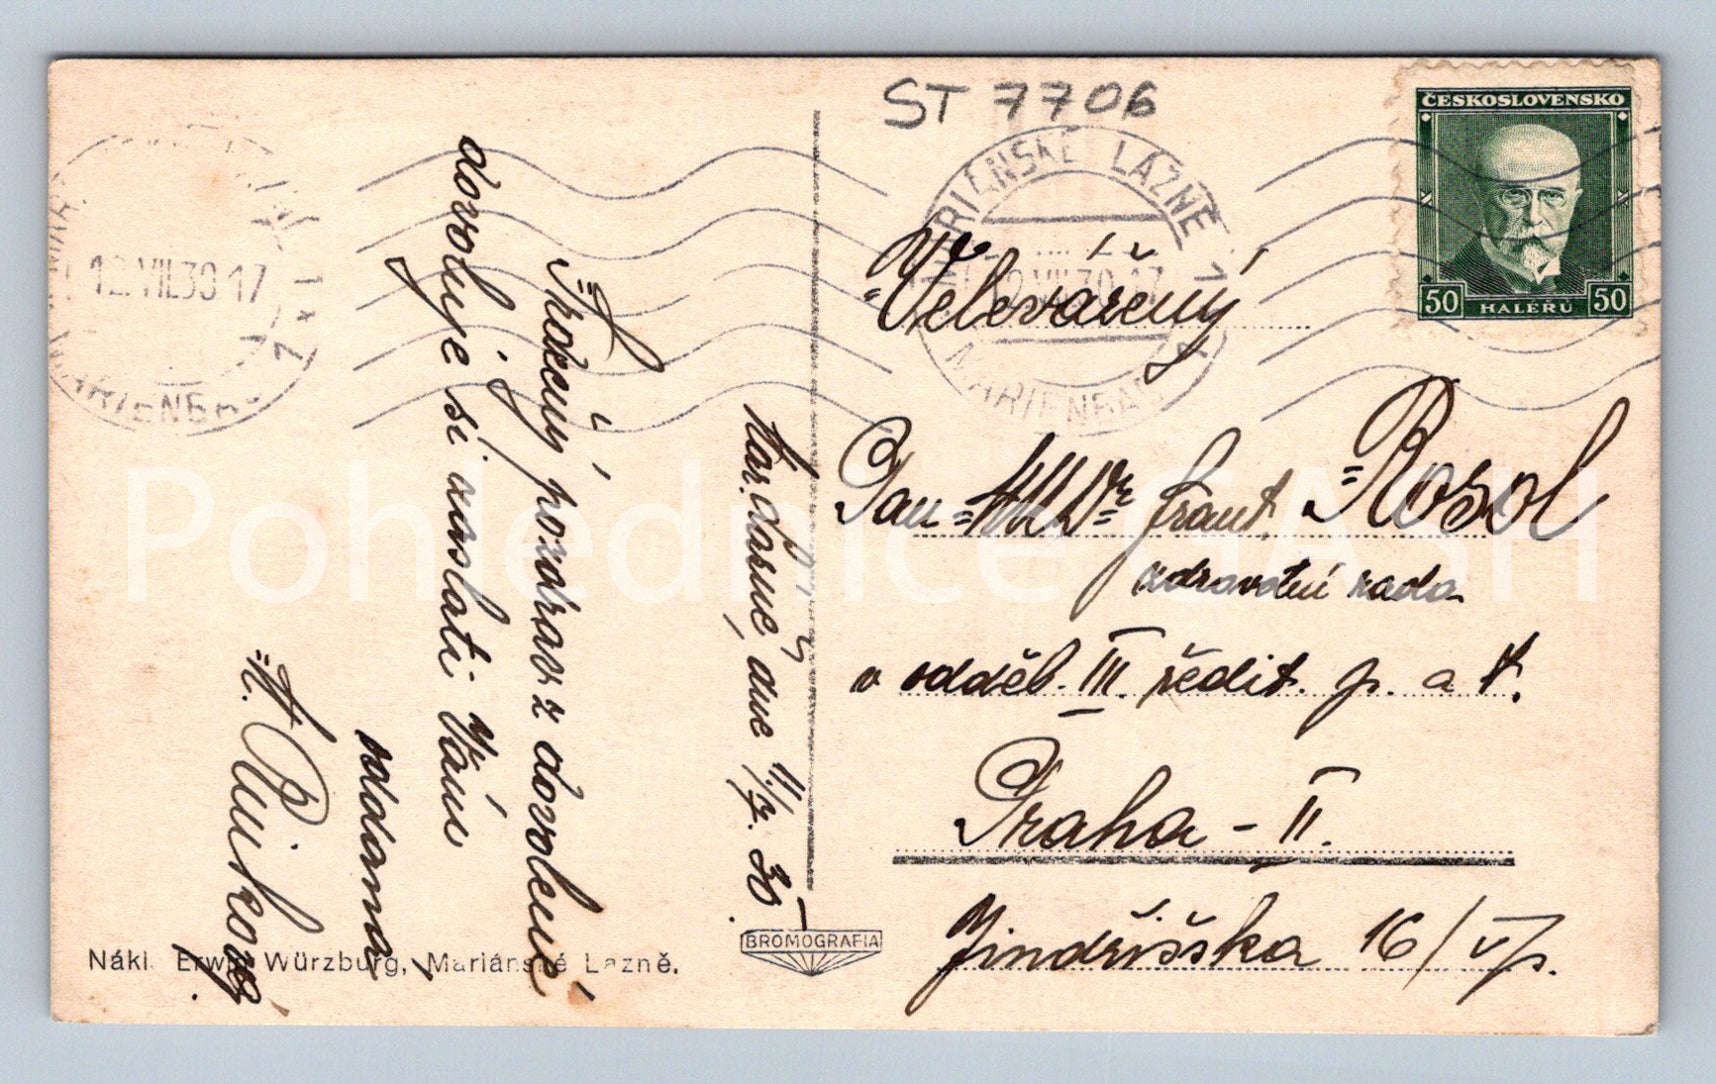 ST 7706
ČESKOSLOVENSKO
50 HALÉŘŮ 50
MARIÁNSKÉ LÁZNĚ 1
12.VII.30-17
MARIENBAD 1
12.VII.30-17
MARIENB
Velevážený
Pan MUDr Frant. Rosol
zdravotní rada
v odděl. III. ředit. p. a t.
Praha - II.
Jindřišská 16/ v/p.
Mar. Lázně, dne 11./7. 30.
Srdečný pozdrav z dovolené
dovoluje si zaslati Vám
oddaná
A. Pinková
BROMOGRAFIA
Nákl. Erwin Würzburg, Mariánské Lázně.
Pohlednice GASH